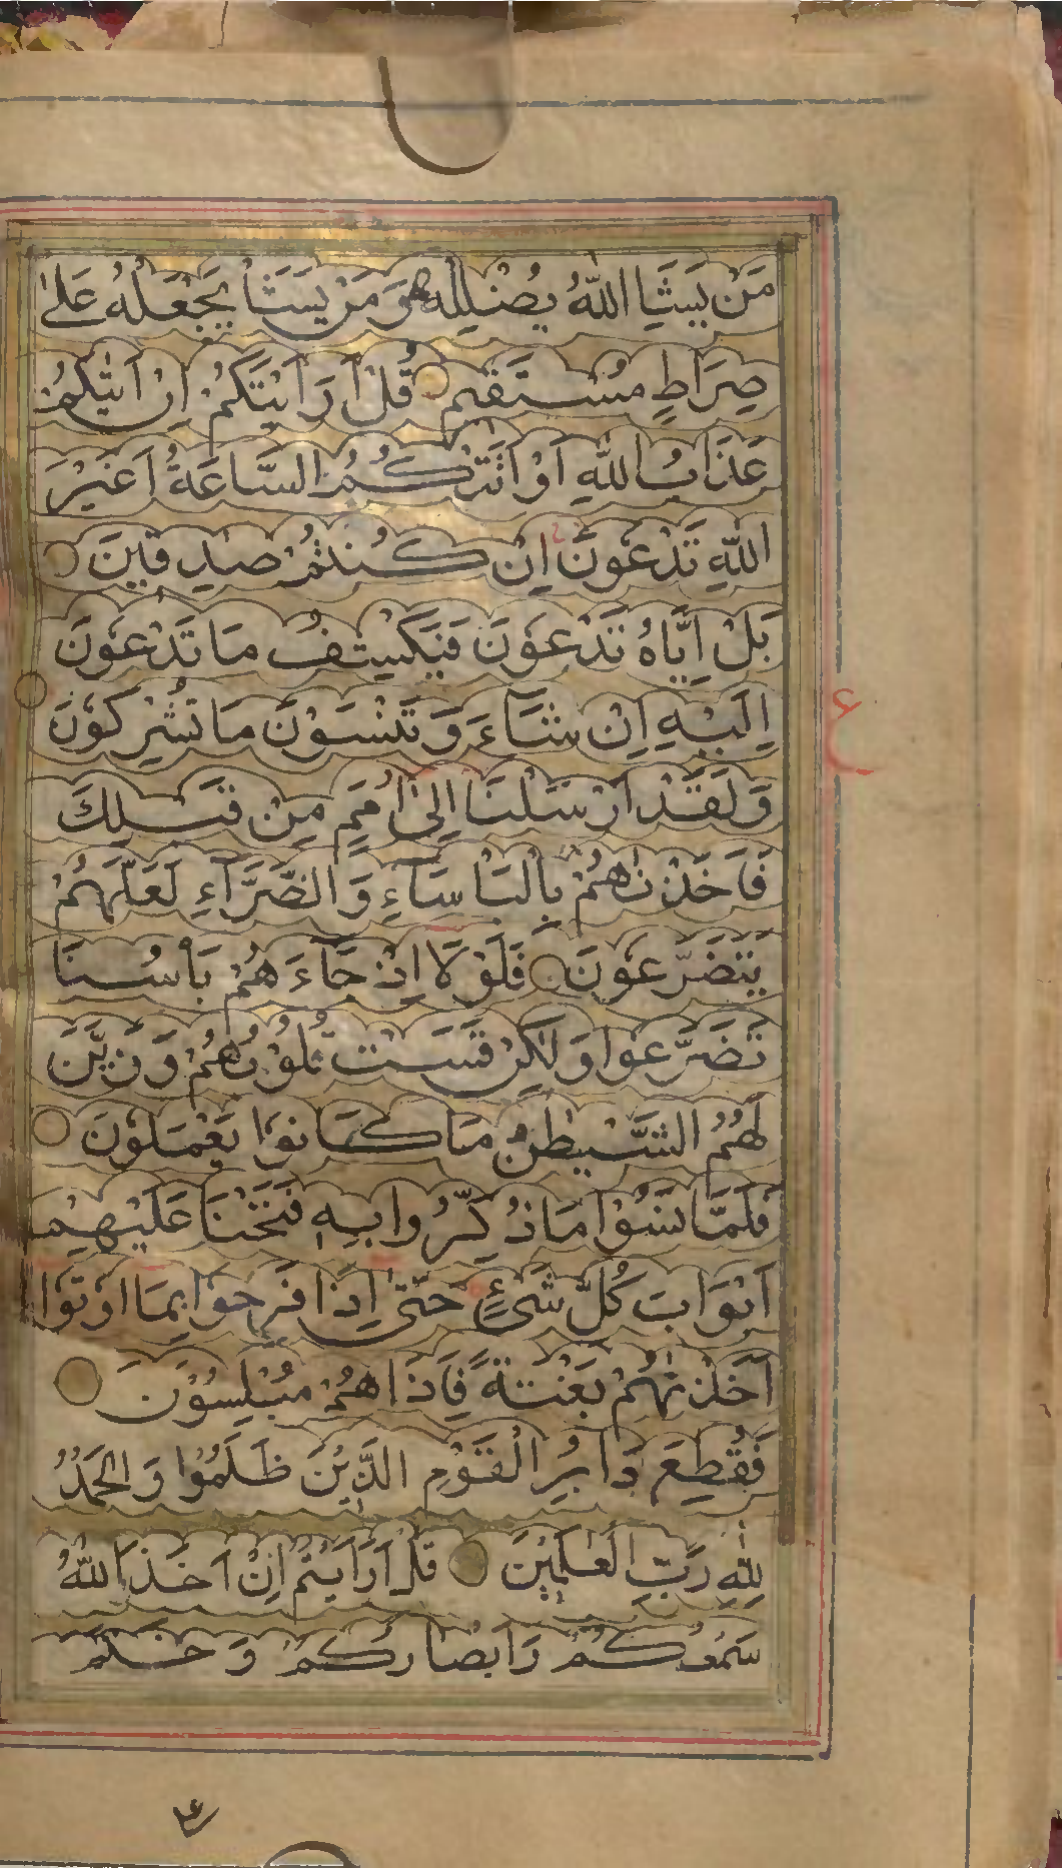 مَنْ يَشَاِ اللّٰهُ يُضْلِلْهُ وَمَنْ يَشَاْ يَجْعَلْهُ عَلٰى
صِرَاطٍ مُسْتَقِيمٍ قُلْ اَرَاَيْتَكُمْ اِنْ اَتٰىكُمْ
عَذَابُ اللّٰهِ اَوْ اَتَتْكُمُ السَّاعَةُ اَغَيْرَ
اللّٰهِ تَدْعُوْنَ اِنْ كُنْتُمْ صٰدِقِيْنَ
بَلْ اِيَّاهُ تَدْعُوْنَ فَيَكْشِفُ مَا تَدْعُوْنَ
اِلَيْهِ اِنْ شَآءَ وَتَنْسَوْنَ مَا تُشْرِكُوْنَ
وَلَقَدْ اَرْسَلْنَا اِلٰى اُمَمٍ مِنْ قَبْلِكَ
فَاَخَذْنٰهُمْ بِالْبَاْسَآءِ وَالضَّرَّآءِ لَعَلَّهُمْ
يَتَضَرَّعُوْنَ فَلَوْ لَا اِذْ جَآءَهُمْ بَاْسُنَا
تَضَرَّعُوْا وَلٰكِنْ قَسَتْ قُلُوْبُهُمْ وَزَيَّنَ
لَهُمُ الشَّيْطٰنُ مَا كَانُوْا يَعْمَلُوْنَ
فَلَمَّا نَسُوْا مَا ذُكِّرُوْا بِهٖ فَتَحْنَا عَلَيْهِمْ
اَبْوَابَ كُلِّ شَىْءٍ حَتّٰى اِذَا فَرِحُوْا بِمَا اُوْتُوْا
اَخَذْنٰهُمْ بَغْتَةً فَاِذَا هُمْ مُبْلِسُوْنَ
فَقُطِعَ دَابِرُ الْقَوْمِ الَّذِيْنَ ظَلَمُوْا وَالْحَمْدُ
لِلّٰهِ رَبِّ الْعٰلَمِيْنَ قُلْ اَرَاَيْتُمْ اِنْ اَخَذَ اللّٰهُ
سَمْعَكُمْ وَاَبْصَارَكُمْ وَخَتَمَ